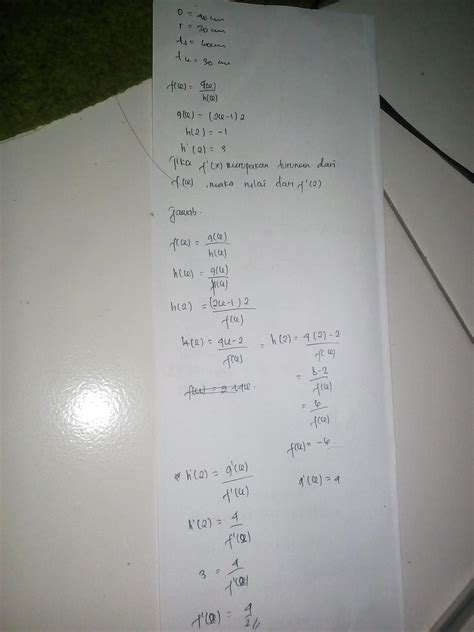 D = 40 cm
r = 20 cm
t₁ = 60 cm
t₂ = 30 cm
f(x) = g(x)/h(x)
g(x) = (2x-1) 2
h(2) = -1
h'(2) = 3
Jika f'(x) merupakan turunan dari
f(x), maka nilai dari f'(2)
Jawab.
f(x) = g(x)/h(x)
h(x) = g(x)/f(x)
h(2) = (2x-1) 2/f(x)
h(2) = 4x-2/f(x) = h(2) = 4(2)-2/f(x)
= 8-2/f(x)
= 6/f(x)
f(x) = -6
* h'(2) = g'(x)/f'(x) g'(x) = 4
h'(2) = 4/f'(x)
3 = 4/f'(x)
f'(x) = 4/3 //